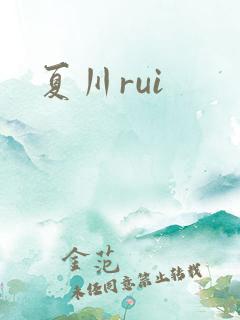 夏川rui
金范
未经同意禁止转载